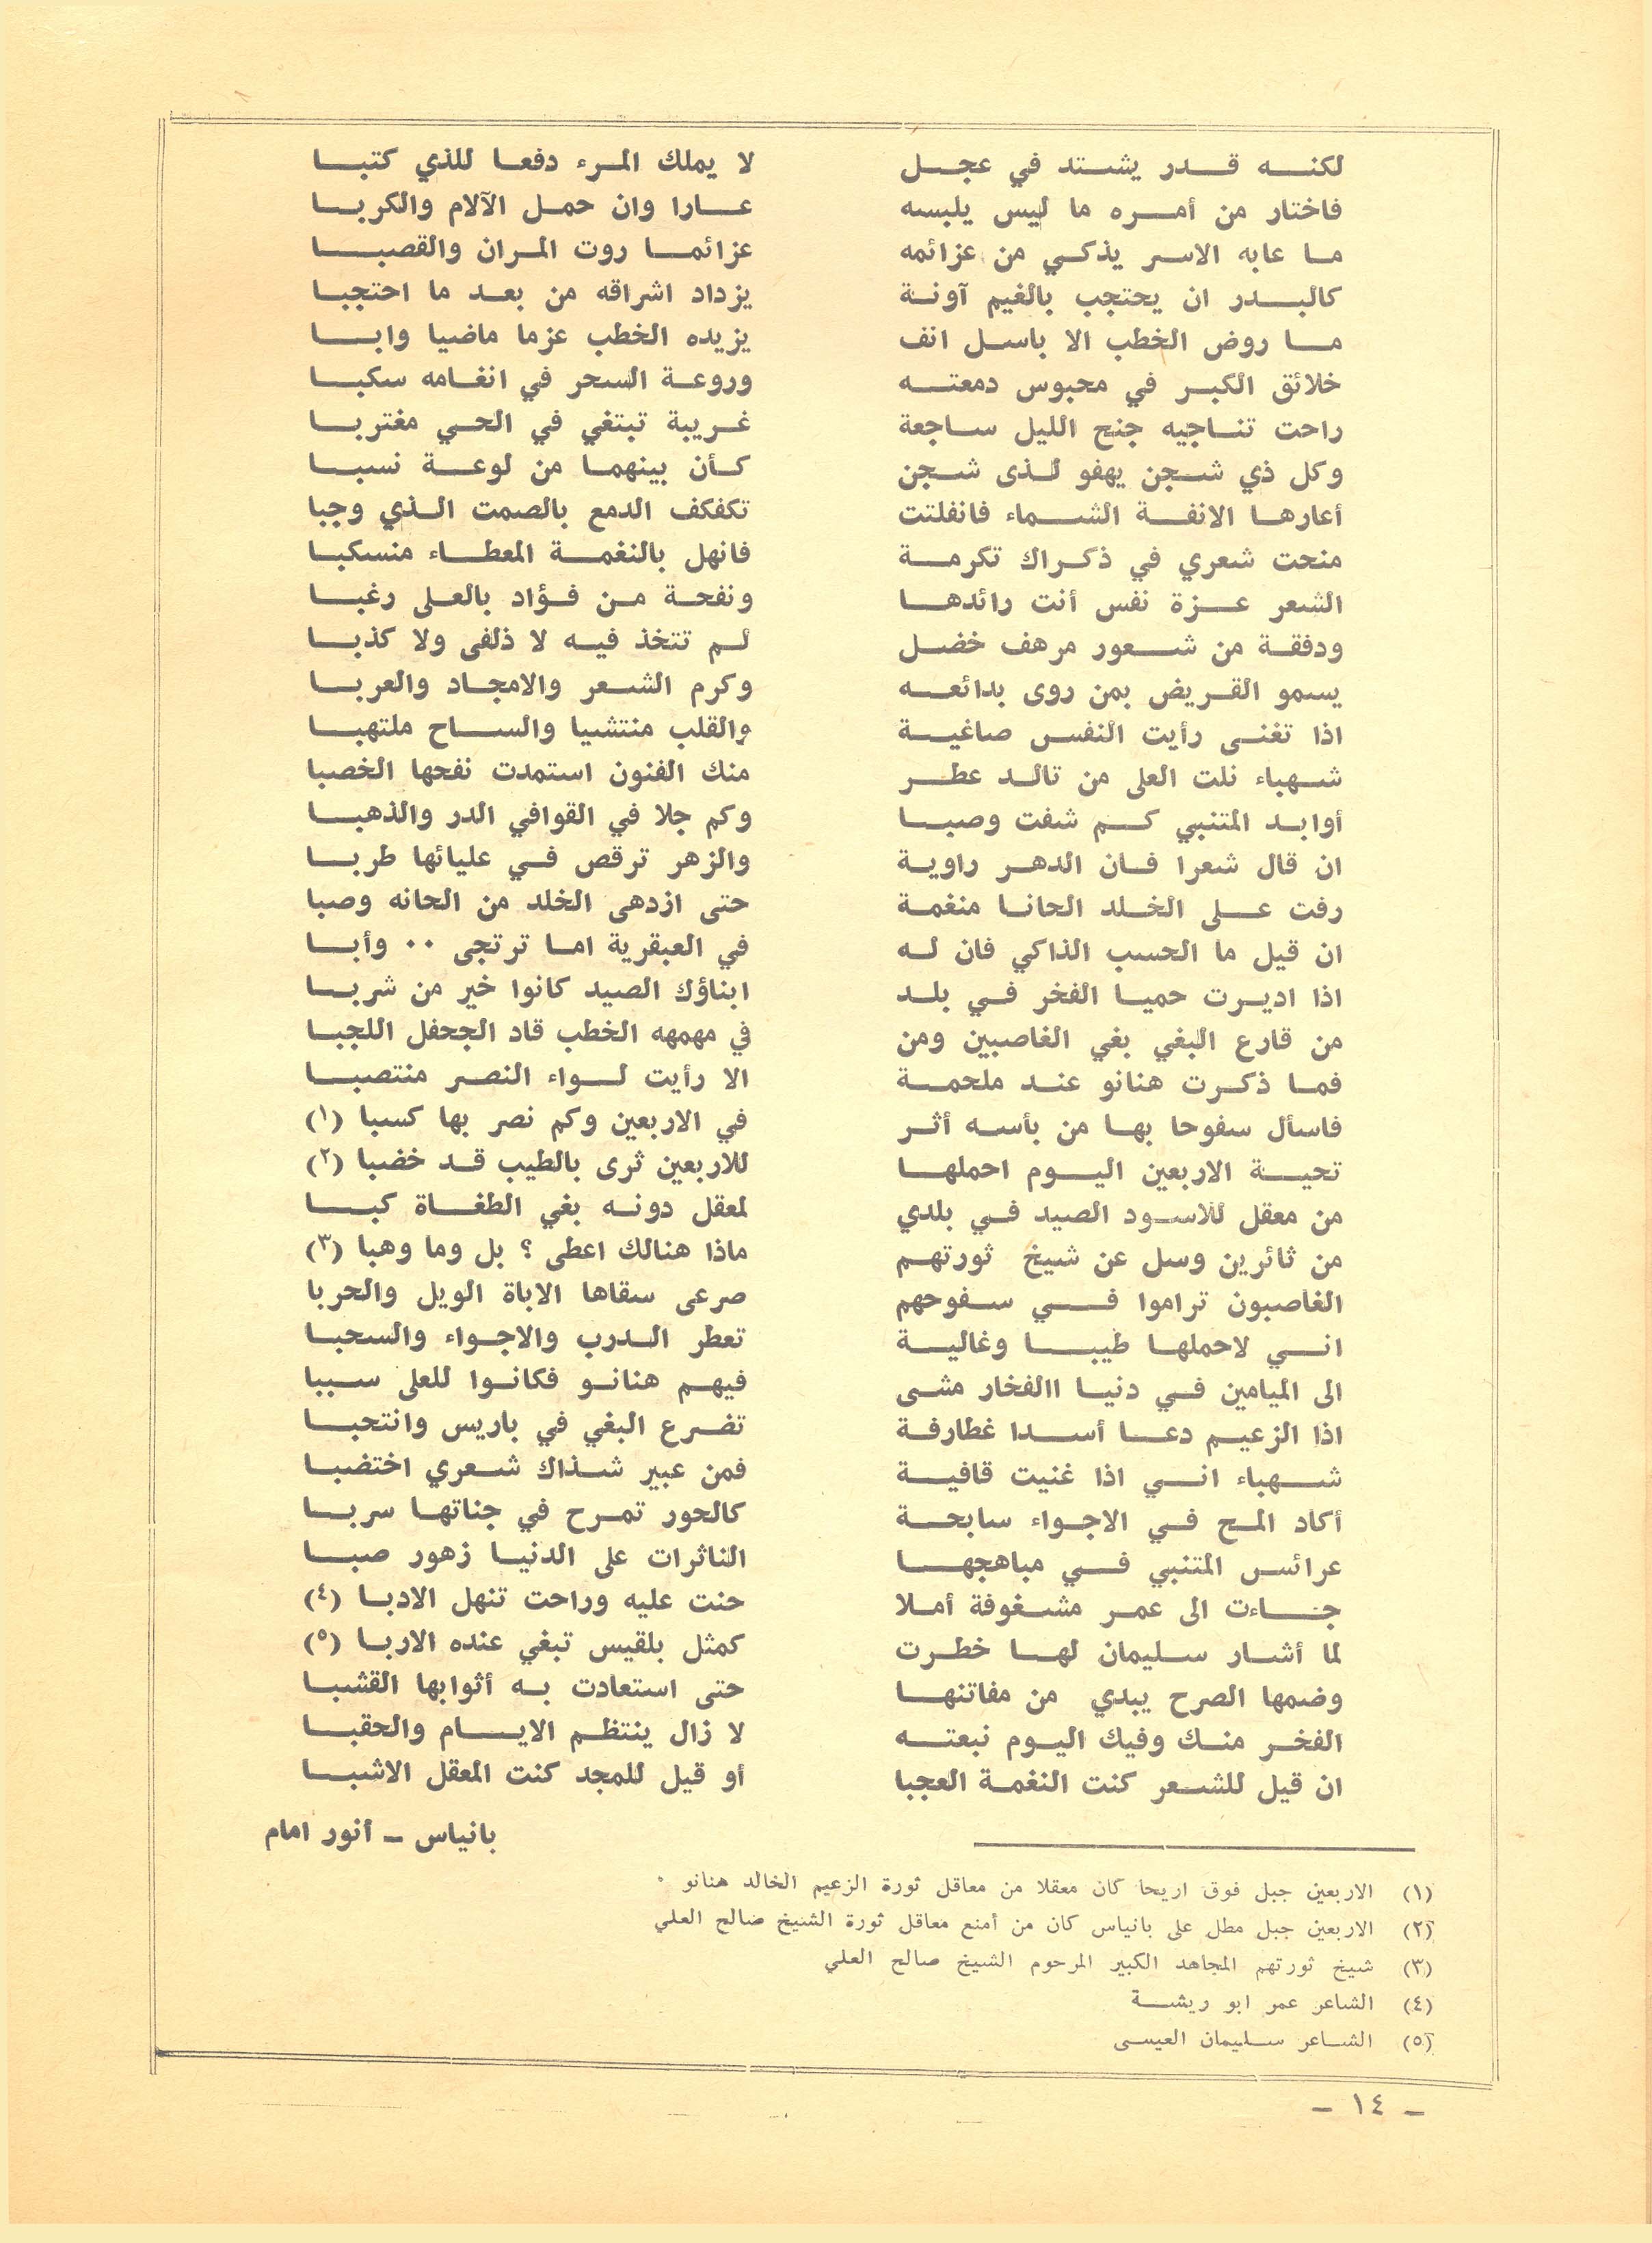 لكنه قدر يشتد في عجل لا يملك المرء دفعا للذي كتبا
فاختار من أمره ما ليس يلبسه عارا وان حمل الآلام والكربا
ما عابه الاسر يذكي من عزائمه عزائما روت المران والقصبا
كالبدر ان يحتجب بالغيم آونة يزداد اشراقه من بعد ما احتجبا
ما روض الخطب الا باسل انف يزيده الخطب عزما ماضيا وابا
خلائق الكبر في محبوس دمعته وروعة السحر في انغامه سكبا
راحت تناجيه جنح الليل ساجعة غريبة تبتغي في الحي مغتربا
وكل ذي شجن يهفو لذى شجن كأن بينهما من لوعة نسبا
أعارها الانفة الشماء فانفلتت تكفكف الدمع بالصمت الذي وجبا
منحت شعري في ذكراك تكرمة فانهل بالنغمة المعطاء منسكبا
الشعر عزة نفس أنت رائدها ونفحة من فؤاد بالعلى رغبا
ودفقة من شعور مرهف خضل لم تتخذ فيه لا ذلفى ولا كذبا
يسمو القريض بمن روى بدائعه وكرم الشعر والامجاد والعربا
اذا تغنى رأيت النفس صاغية والقلب منتشيا والساح ملتهبا
شهباء نلت العلى من تالد عطر منك الفنون استمدت نفحها الخصبا
أوابد المتنبي كم شفت وصبا وكم جلا في القوافي الدر والذهبا
ان قال شعرا فان الدهر راوية والزهر ترقص في عليائها طربا
رفت على الخلد الحانا منغمة حتى ازدهى الخلد من الحانه وصبا
ان قيل ما الحسب الذاكي فان له في العبقرية اما ترتجى ٠٠ وأبا
اذا اديرت حميا الفخر في بلد ابناؤك الصيد كانوا خير من شربا
من قارع البغي بغي الغاصبين ومن في مهمهه الخطب قاد الجحفل اللجبا
فما ذكرت هنانو عند ملحمة الا رأيت لواء النصر منتصبا
فاسأل سفوحا بها من بأسه أثر في الاربعين وكم نصر بها كسبا (١)
تحية الاربعين اليوم احملها للاربعين ثرى بالطيب قد خضبا (٢)
من معقل للاسود الصيد في بلدي لمعقل دونه بغي الطغاة كبا
من ثائرين وسل عن شيخ ثورتهم ماذا هنالك اعطى ؟ بل وما وهبا (٣)
الغاصبون تراموا في سفوحهم صرعى سقاها الاباة الويل والحربا
اني لاحملها طيبا وغالية تعطر الدرب والاجواء والسحبا
الى الميامين في دنيا االفخار مشى فيهم هنانو فكانوا للعلى سببا
اذا الزعيم دعا أسدا غطارفة تضرع البغي في باريس وانتحبا
شهباء اني اذا غنيت قافية فمن عبير شذاك شعري اختضبا
أكاد المح في الاجواء سابحة كالحور تمرح في جناتها سربا
عرائس المتنبي في مباهجها الناثرات على الدنيا زهور صبا
جاءت الى عمر مشغوفة أملا حنت عليه وراحت تنهل الادبا (٤)
لما أشار سليمان لها خطرت كمثل بلقيس تبغي عنده الاربا (٥)
وضمها الصرح يبدي من مفاتنها حتى استعادت به أثوابها القشبا
الفخر منك وفيك اليوم نبعته لا زال ينتظم الايام والحقبا
ان قيل للشعر كنت النغمة العجبا أو قيل للمجد كنت المعقل الاشبا
بانياس ــ أنور امام
(١) الاربعين جبل فوق اريحا كان معقلا من معاقل ثورة الزعيم الخالد هنانو ٠
(٢) الاربعين جبل مطل على بانياس كان من أمنع معاقل ثورة الشيخ صالح العلي
(٣) شيخ ثورتهم المجاهد الكبير المرحوم الشيخ صالح العلي
(٤) الشاعر عمر ابو ريشة
(٥) الشاعر سليمان العيسى
ــ ١٤ ــ